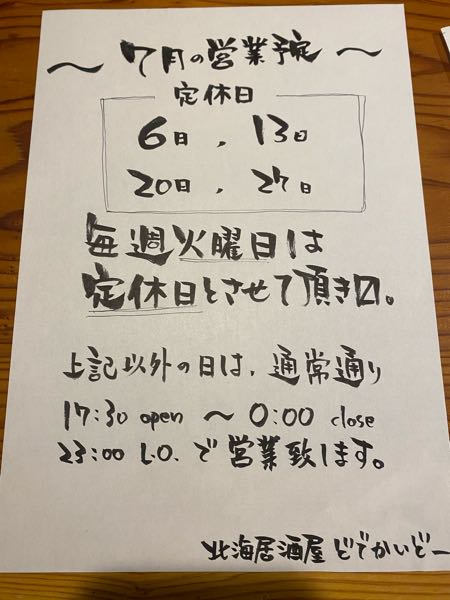 〜 7月の営業予定 〜
定休日
6日 , 13日
20日 , 27日
毎週火曜日は
定休日とさせて頂き〼。
上記以外の日は、通常通り
17:30 open 〜 0:00 close
23:00 L.O. で営業致します。
北海居酒屋 どでかいどー